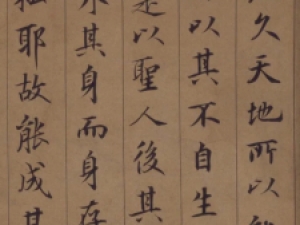 久天地所以能
以其不自生
是以聖人後其
其身而身存
耶故能成其